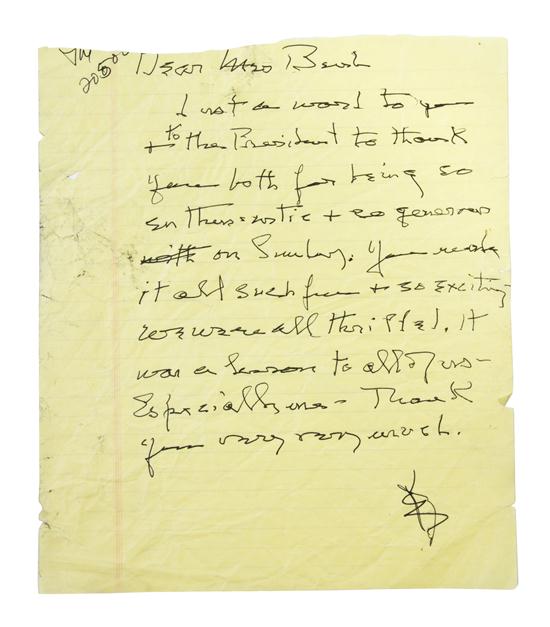 Dear Mrs Bush
Just a word to you
+ to the President to thank
you both for being so
enthusiastic + so generous
with on Sunday. You made
it all such fun + so exciting
we were all thrilled. It
was a lesson to all of us -
Especially me - Thank
you very very much.